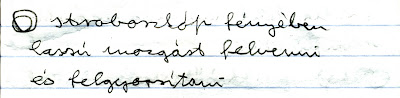 stroboszkóp fényében
lassú mozgást felvenni
és felgyorsítani